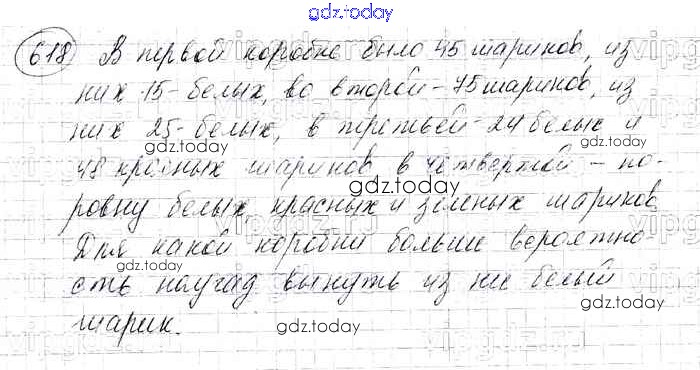 gdz.today
618 В первой коробке было 45 шариков, из
них 15 - белых, во второй - 75 шариков, из
них 25 - белых, в третьей - 24 белых и
48 красных шариков в четвертой - по-
gdz.today
gdz.today
ровну белых, красных и зеленых шариков
gdz.today
Для какой коробки больше вероятно-
gdz.today
сть наугад вынуть из не белый
gdz.today
шарик.
gdz.today
gdz.today